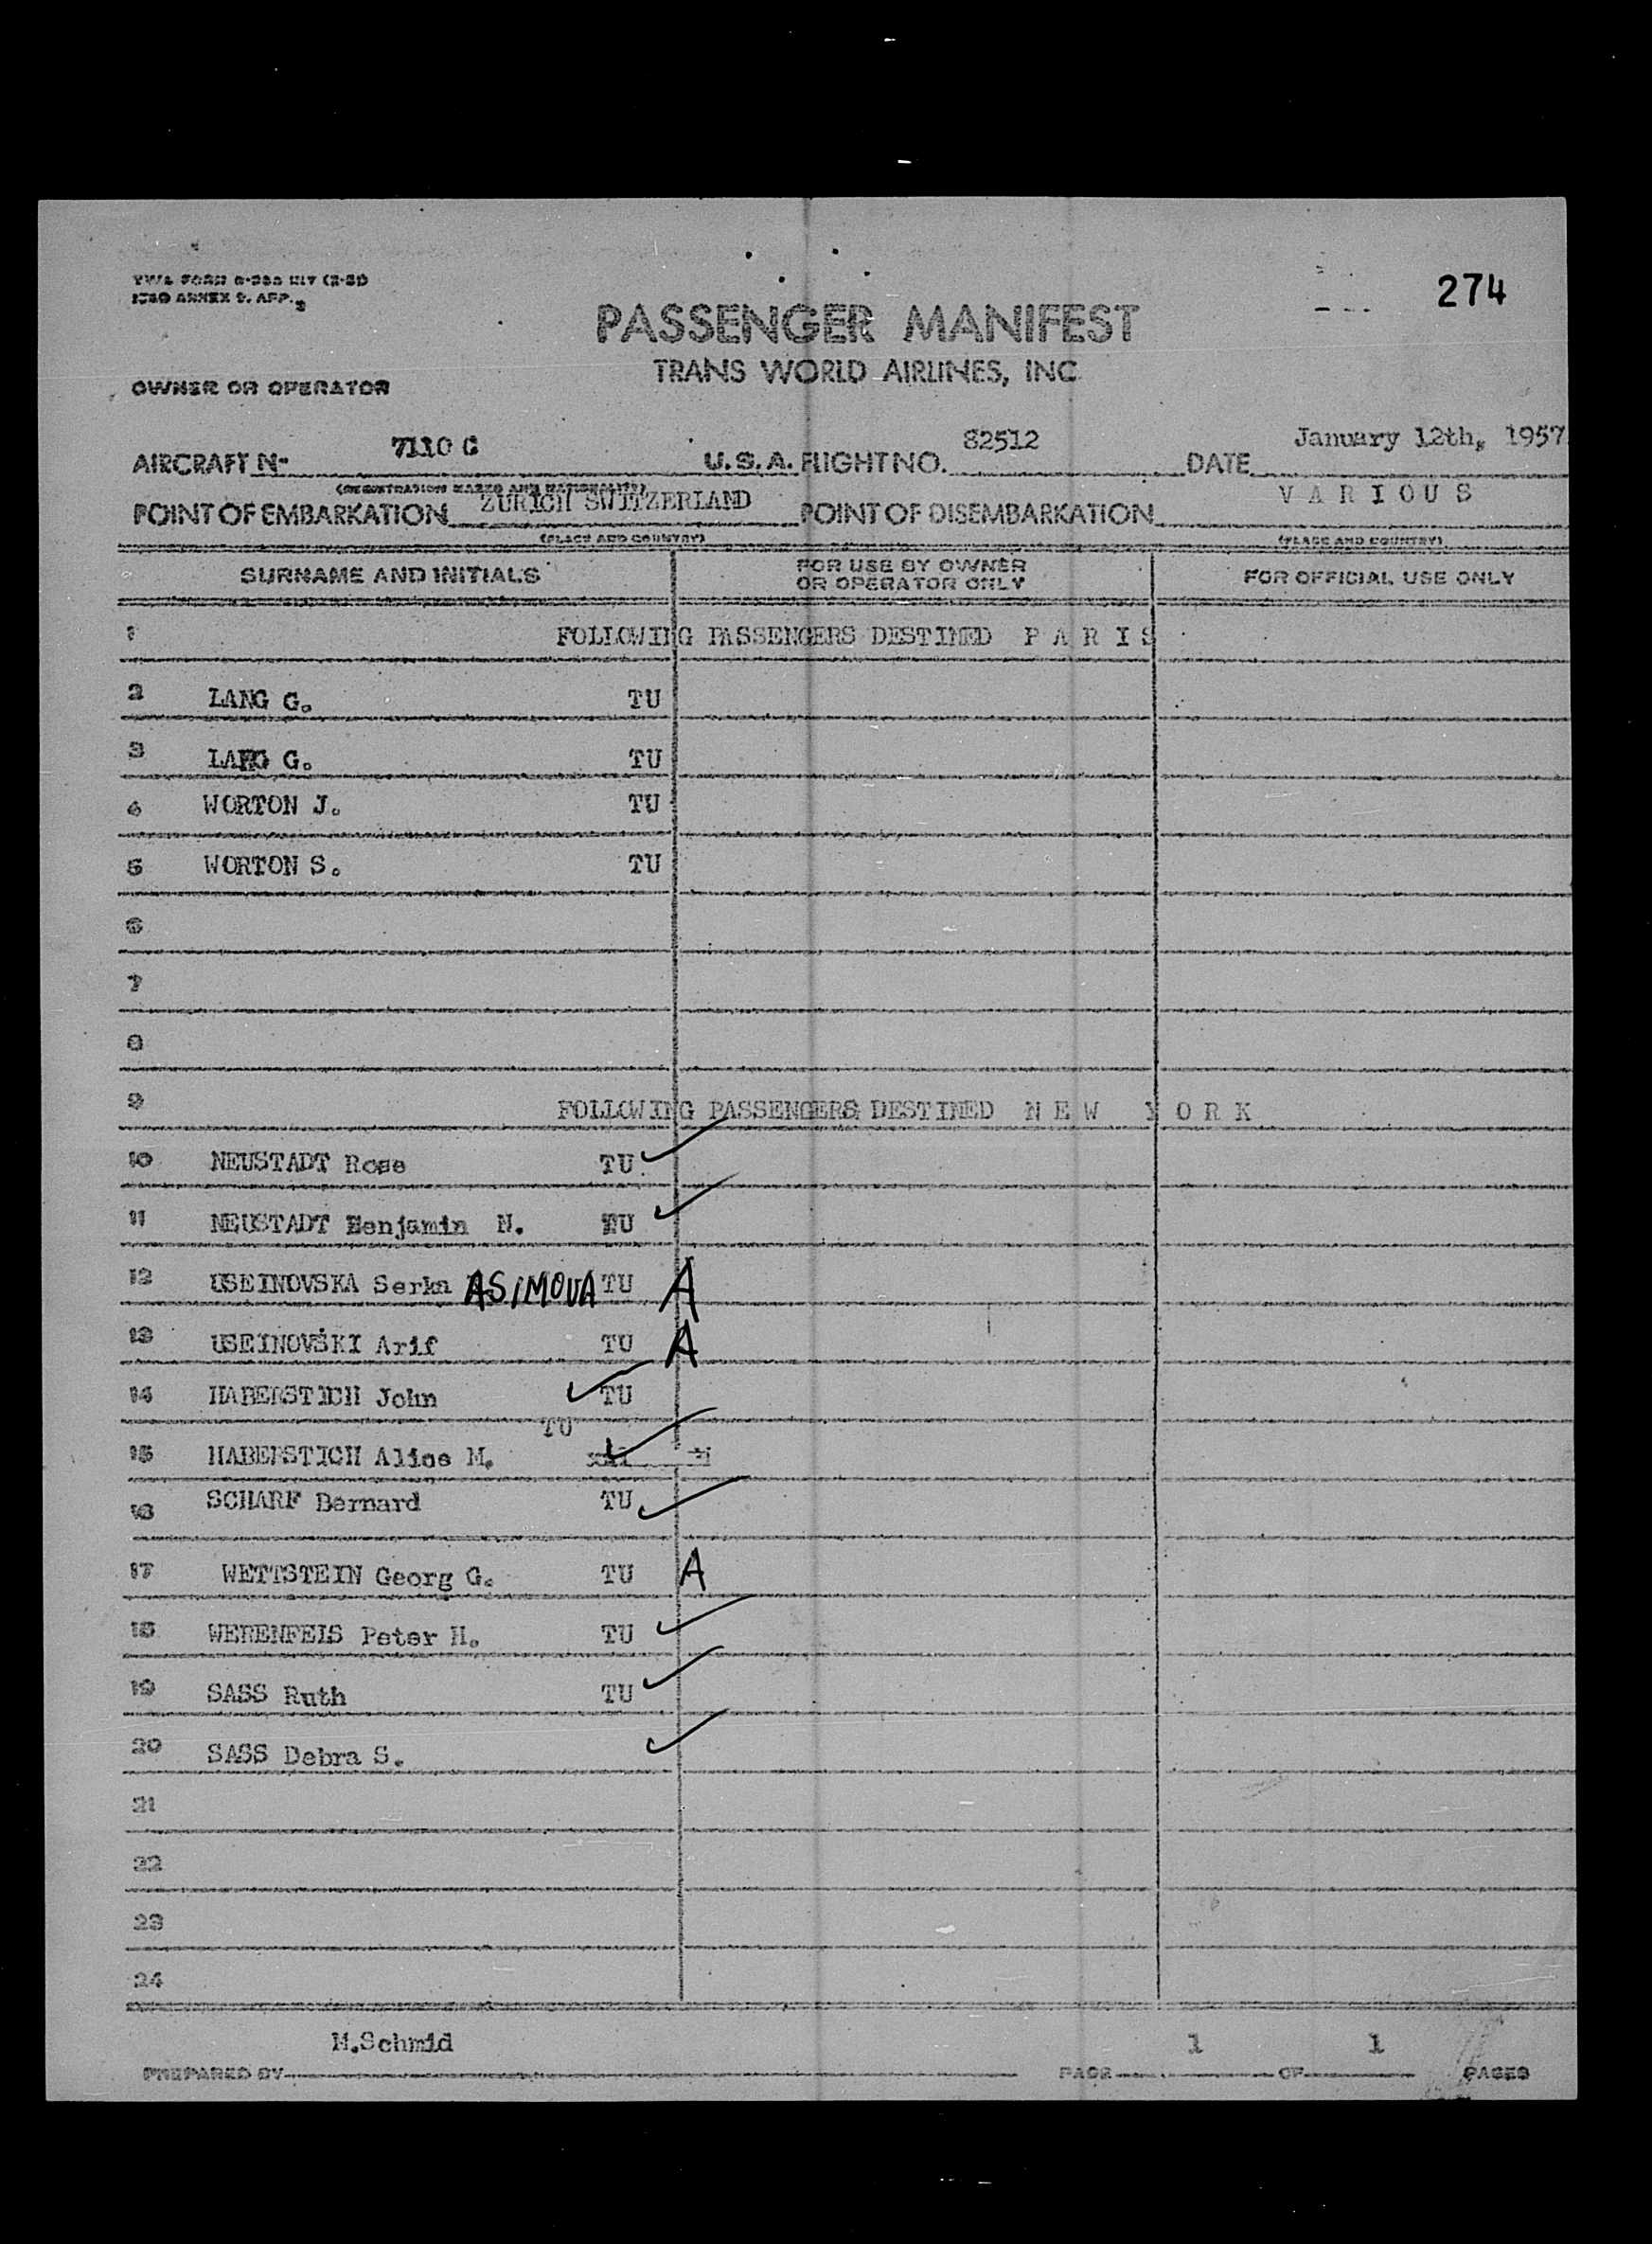 274
PASSENGER MANIFEST
TRANS WORLD AIRLINES, INC
OWNER OR OPERATOR
AIRCRAFT Nº 7110 C U.S.A. FLIGHT NO. 82512 DATE January 12th, 1957
(REGISTRATION MARKS AND NATIONALITY)
POINT OF EMBARKATION ZURICH SWITZERLAND POINT OF DISEMBARKATION VARIOUS
(PLACE AND COUNTRY) (PLACE AND COUNTRY)
SURNAME AND INITIALS FOR USE BY OWNER OR OPERATOR ONLY FOR OFFICIAL USE ONLY
1 FOLLOWING PASSENGERS DESTINED P A R I S
2 LANG G. TU
3 LANG G. TU
4 WORTON J. TU
5 WORTON S. TU
6
7
8
9 FOLLOWING PASSENGERS DESTINED N E W Y O R K
10 NEUSTADT Rose TU
11 NEUSTADT Benjamin N. TU
12 USEINOVSKA Serka ASIMOVA TU A
13 USEINOVSKI Arif TU A
14 HABERSTICH John TU
15 HABERSTICH Alice M. TU
16 SCHARF Bernard TU
17 WETTSTEIN Georg G. TU A
18 WERENFELS Peter H. TU
19 SASS Ruth TU
20 SASS Debra S.
21
22
23
24
M.Schmid 1 1
PREPARED BY PAGE OF PAGES